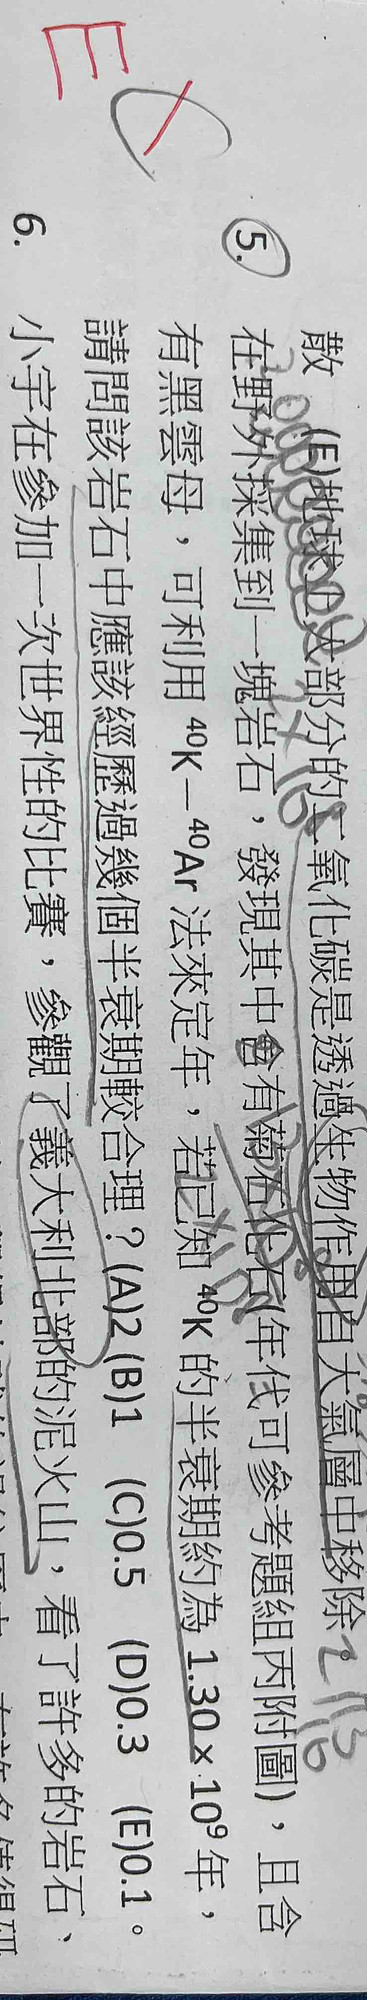 散 (E)地球上大部分的二氧化碳是透過生物作用自大氣層中移除
5. 在野外採集到一塊岩石，發現其中含有菊石化石(年代可參考題組丙附圖)，且含
有黑雲母，可利用 ⁴⁰K—⁴⁰Ar 法來定年，若已知 ⁴⁰K 的半衰期約為 1.30×10⁹年，
請問該岩石中應該經歷過幾個半衰期較合理？(A)2 (B)1 (C)0.5 (D)0.3 (E)0.1。
E C
6. 小宇在參加一次世界性的比賽，參觀了義大利北部的泥火山，看了許多的岩石、